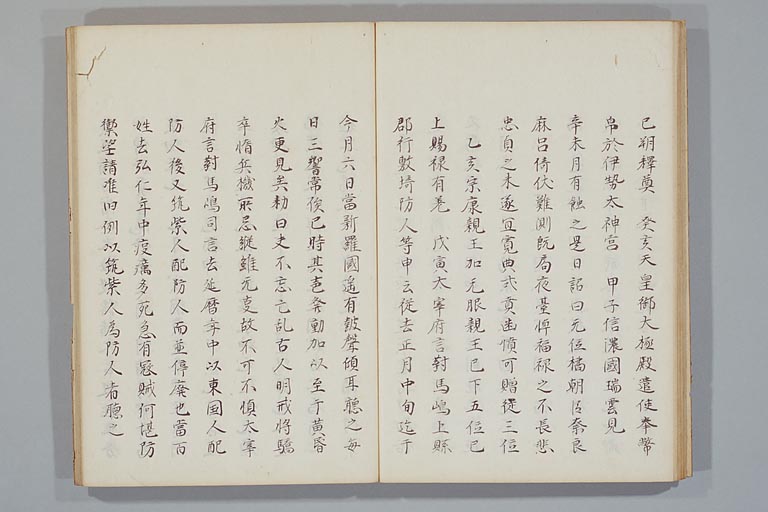 巳朔釋奠　癸亥天皇御大極殿遣使奉幣
帛於伊勢太神宮　甲子信濃國瑞雲見
辛未月有蝕之是日詔曰无位橘朝臣奈良
麻呂倚伏難測既局夜臺悼福禄之不長悲
忠貞之未遂宜寛典式賁幽憤可贈從三位
乙亥宗康親王加元服親王已下五位已
上賜禄有差　戊寅大宰府言對馬嶋上縣
郡竹敷埼防人等申云從去正月中旬迄于
今月六日當新羅國遥有皷聲傾耳聽之毎
日三響常俟巳時其聲發動加以至于黄昏
火更見矣勅曰史不忘亡乱古人明戒将驕
卒惰兵機所忌縱雖无変故不可不慎太宰
府言對馬嶋司言去延暦年中以東国人配
防人後又筑紫人配防人而並停廃也當百
姓去弘仁年中疫癘多死忽有冦賊何堪防
禦望請准旧例以筑紫人為防人者聽之